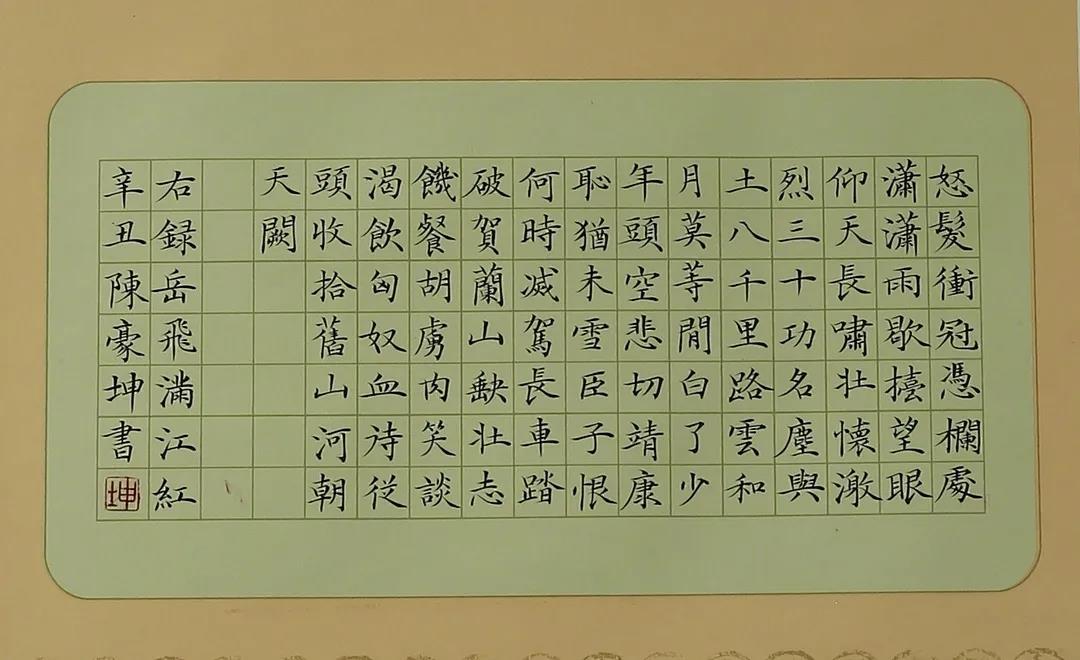 怒髮衝冠憑欄處
瀟瀟雨歇擡望眼
仰天長嘯壯懷激
烈三十功名塵與
土八千里路雲和
月莫等閒白了少
年頭空悲切靖康
恥猶未雪臣子恨
何時滅駕長車踏
破賀蘭山缺壯志
饑餐胡虜肉笑談
渴飲匈奴血待從
頭收拾舊山河朝
天闕
右録岳飛滿江紅
辛丑陳豪坤書
坤